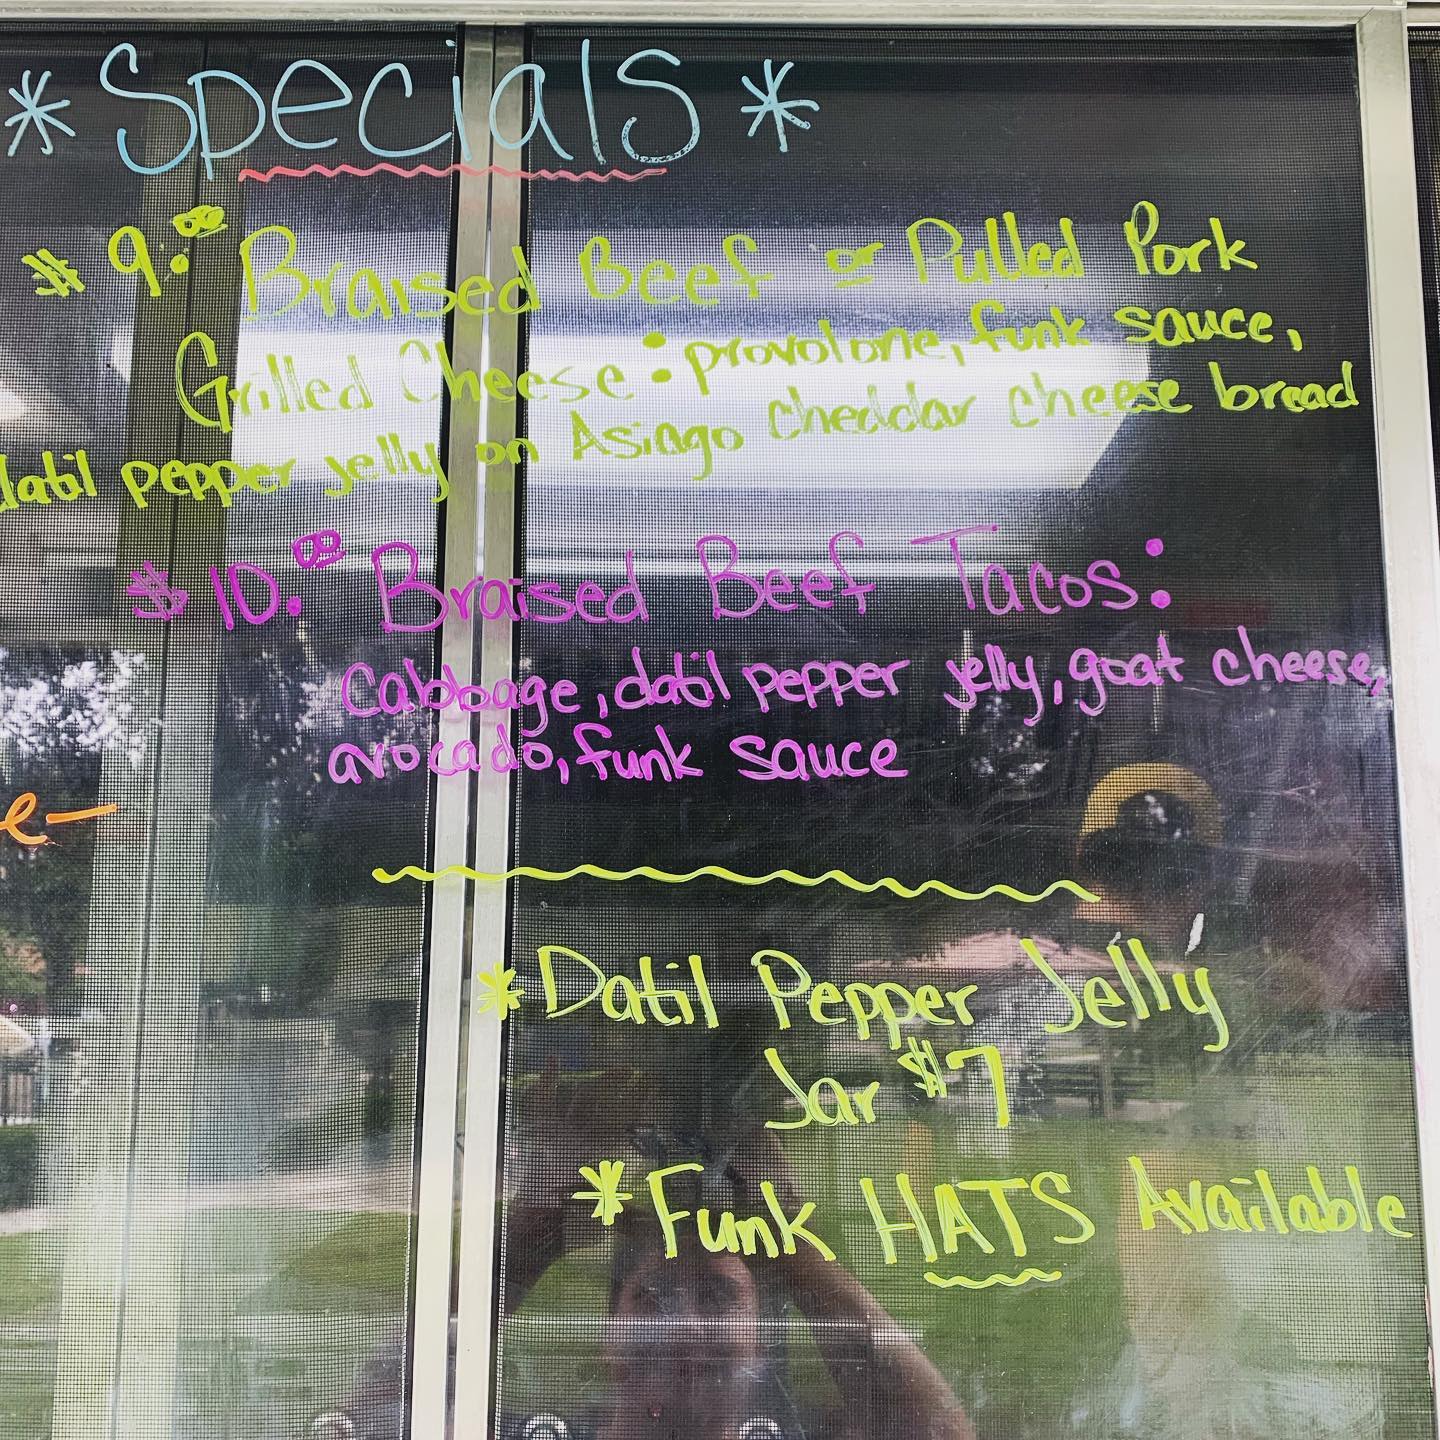 *Specials*
$9.00 Braised Beef or Pulled Pork
Grilled Cheese: provolone, funk sauce,
datil pepper jelly on Asiago cheddar cheese bread
$10.00 Braised Beef Tacos:
Cabbage, datil pepper jelly, goat cheese,
avocado, funk sauce
e-
*Datil Pepper Jelly
Jar $7
*Funk HATS Available